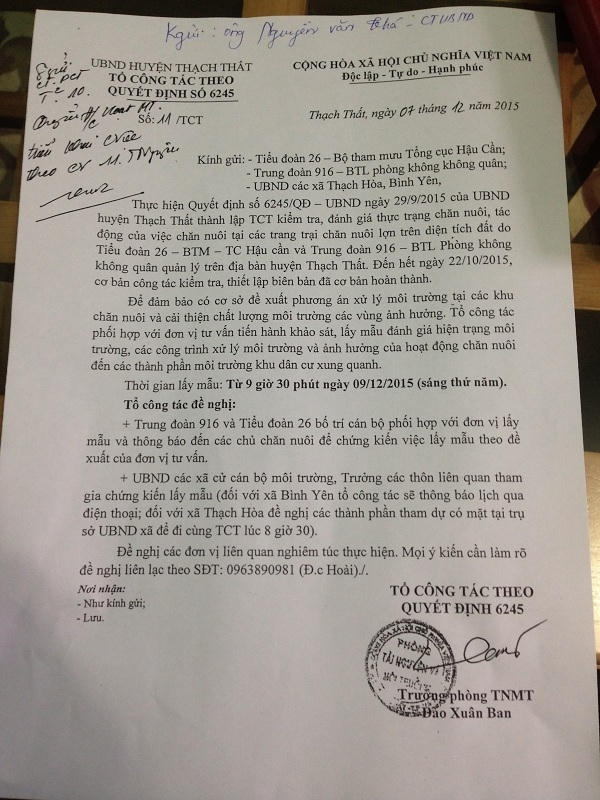 Kgửi: ông Nguyễn văn - CTUBND
UBND HUYỆN THẠCH THẤT
TỔ CÔNG TÁC THEO
QUYẾT ĐỊNH SỐ 6245
Số: 11/TCT
CỘNG HÒA XÃ HỘI CHỦ NGHĨA VIỆT NAM
Độc lập - Tự do - Hạnh phúc
Thạch Thất, ngày 07 tháng 12 năm 2015
Kính gửi: - Tiểu đoàn 26 – Bộ tham mưu Tổng cục Hậu Cần;
- Trung đoàn 916 – BTL phòng không không quân;
- UBND các xã Thạch Hòa, Bình Yên,
Thực hiện Quyết định số 6245/QĐ – UBND ngày 29/9/2015 của UBND
huyện Thạch Thất thành lập TCT kiểm tra, đánh giá thực trạng chăn nuôi, tác
động của việc chăn nuôi tại các trang trại chăn nuôi lợn trên diện tích đất do
Tiểu đoàn 26 – BTM – TC Hậu cần và Trung đoàn 916 – BTL Phòng không
không quân quản lý trên địa bàn huyện Thạch Thất. Đến hết ngày 22/10/2015,
cơ bản công tác kiểm tra, thiết lập biên bản đã cơ bản hoàn thành.
Để đảm bảo có cơ sở đề xuất phương án xử lý môi trường tại các khu
chăn nuôi và cải thiện chất lượng môi trường các vùng ảnh hưởng. Tổ công tác
phối hợp với đơn vị tư vấn tiến hành khảo sát, lấy mẫu đánh giá hiện trạng môi
trường, các công trình xử lý môi trường và ảnh hưởng của hoạt động chăn nuôi
đến các thành phần môi trường khu dân cư xung quanh.
Thời gian lấy mẫu: Từ 9 giờ 30 phút ngày 09/12/2015 (sáng thứ năm).
Tổ công tác đề nghị:
+ Trung đoàn 916 và Tiểu đoàn 26 bố trí cán bộ phối hợp với đơn vị lấy
mẫu và thông báo đến các chủ chăn nuôi để chứng kiến việc lấy mẫu theo đề
xuất của đơn vị tư vấn.
+ UBND các xã cử cán bộ môi trường, Trưởng các thôn liên quan tham
gia chứng kiến lấy mẫu (đối với xã Bình Yên tổ công tác sẽ thông báo lịch qua
điện thoại; đối với xã Thạch Hòa đề nghị các thành phần tham dự có mặt tại trụ
sở UBND xã để đi cùng TCT lúc 8 giờ 30).
Đề nghị các đơn vị liên quan nghiêm túc thực hiện. Mọi ý kiến cần làm rõ
đề nghị liên lạc theo SĐT: 0963890981 (Đ.c Hoài)./.
Nơi nhận:
- Như kính gửi;
- Lưu.
TỔ CÔNG TÁC THEO
QUYẾT ĐỊNH 6245
PHÒNG
TÀI NGUYÊN VÀ
MÔI TRƯỜNG
Trưởng phòng TNMT
Đào Xuân Ban